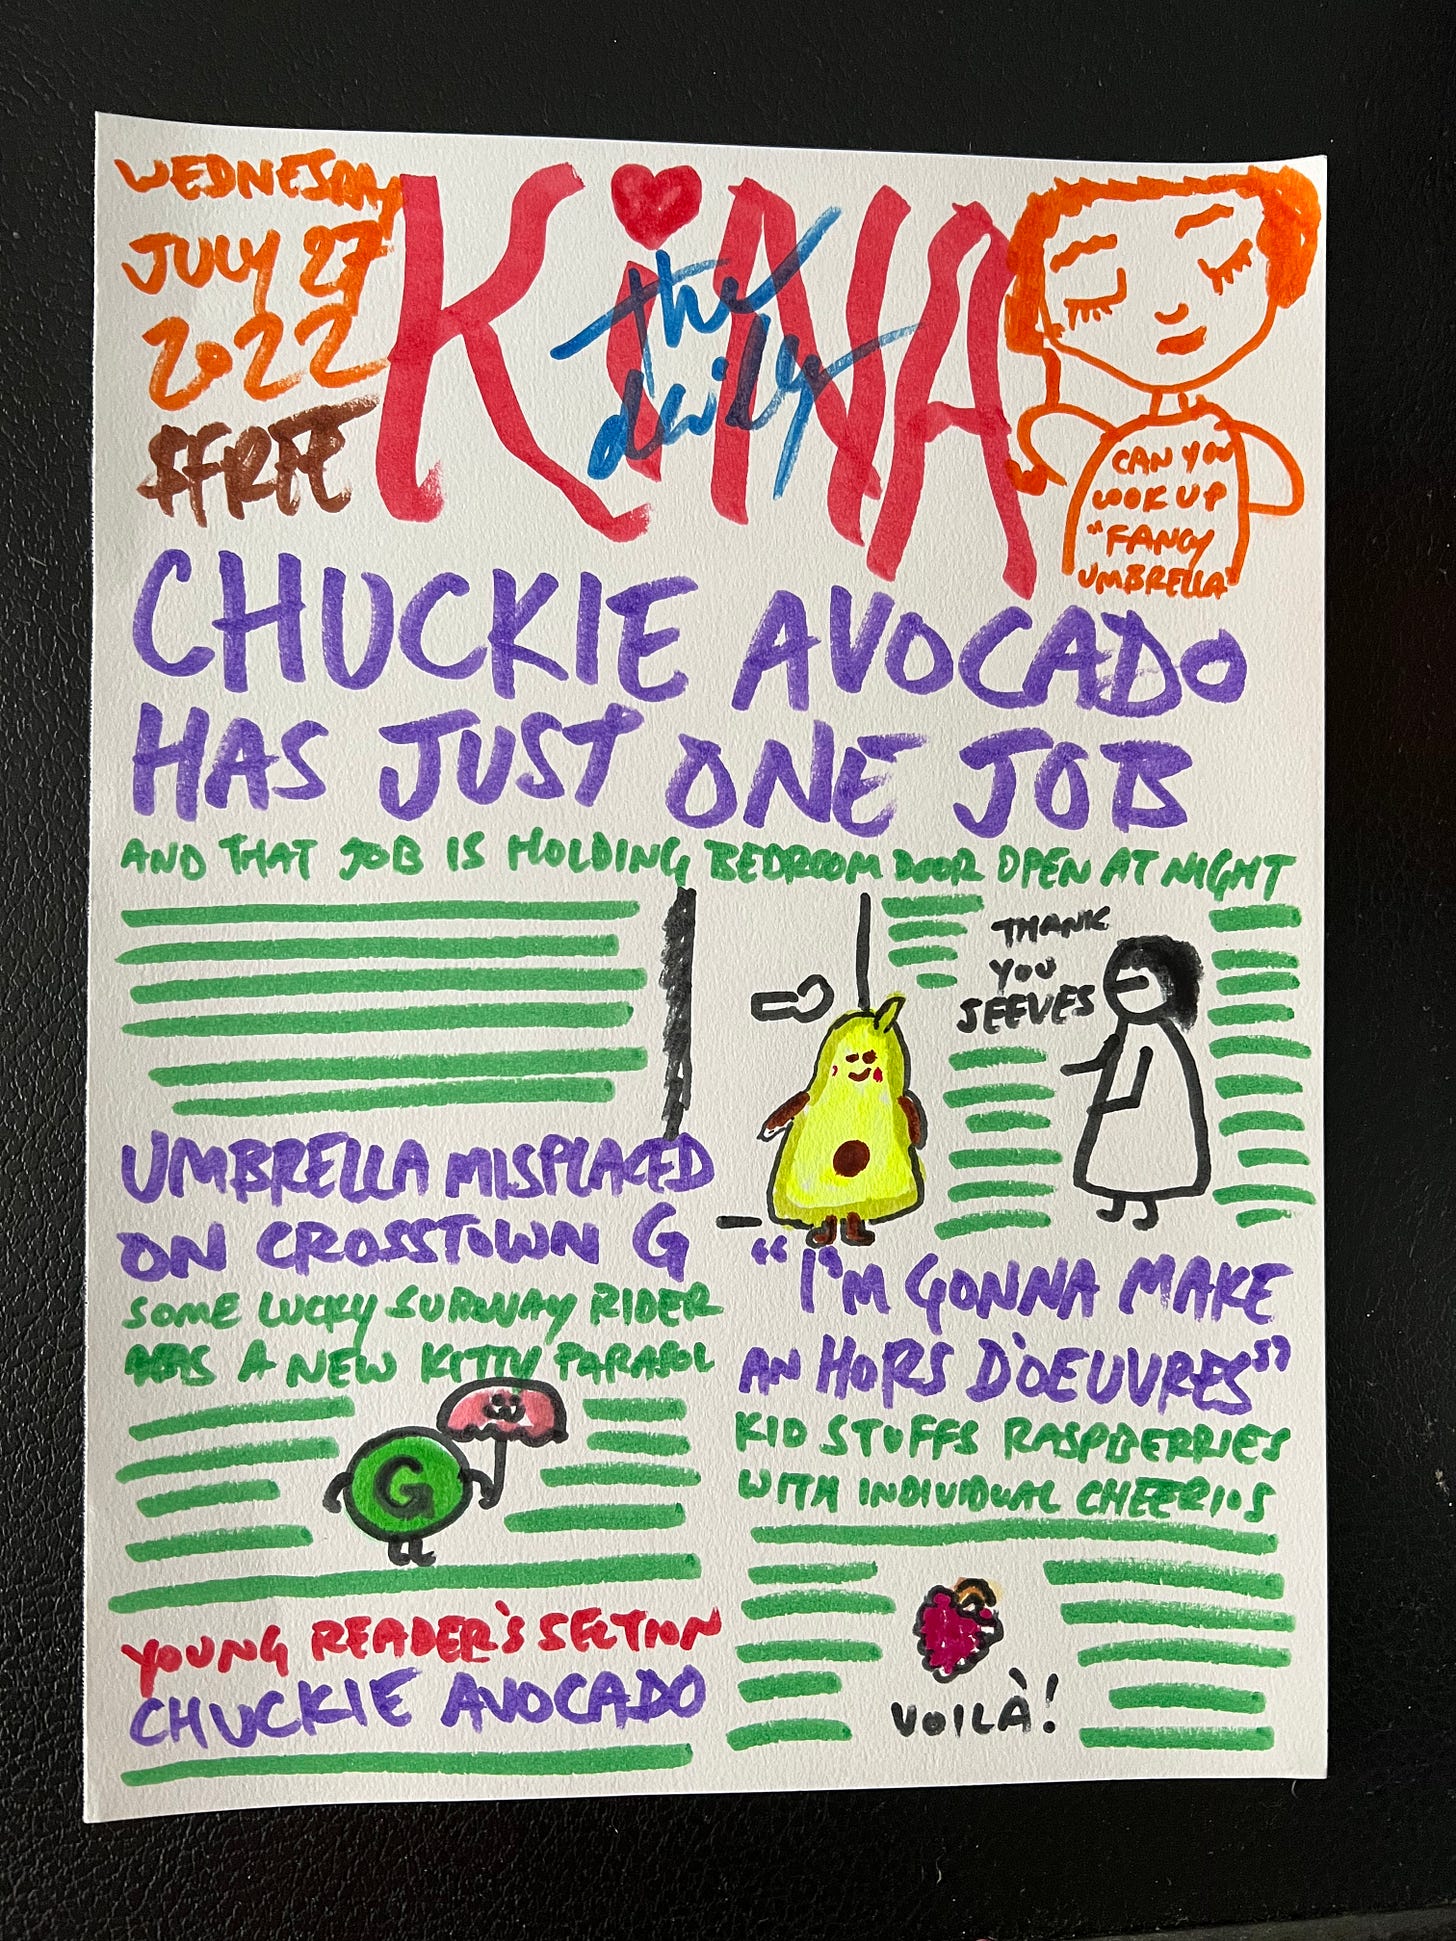 WEDNESDAY
JULY 27
2022
$FREE
KiNA
the
daily
CAN YOU
LOOK UP
"FANCY
UMBRELLA"
CHUCKIE AVOCADO
HAS JUST ONE JOB
AND THAT JOB IS HOLDING BEDROOM DOOR OPEN AT NIGHT
THANK
YOU
JEEVES
UMBRELLA MISPLACED
ON CROSSTOWN G
SOME LUCKY SUBWAY RIDER
HAS A NEW KITTY PARASOL
G
"I'M GONNA MAKE
AN HORS D'OEUVRES"
KID STUFFS RASPBERRIES
WITH INDIVIDUAL CHEERIOS
VOILÀ!
YOUNG READER'S SECTION
CHUCKIE AVOCADO